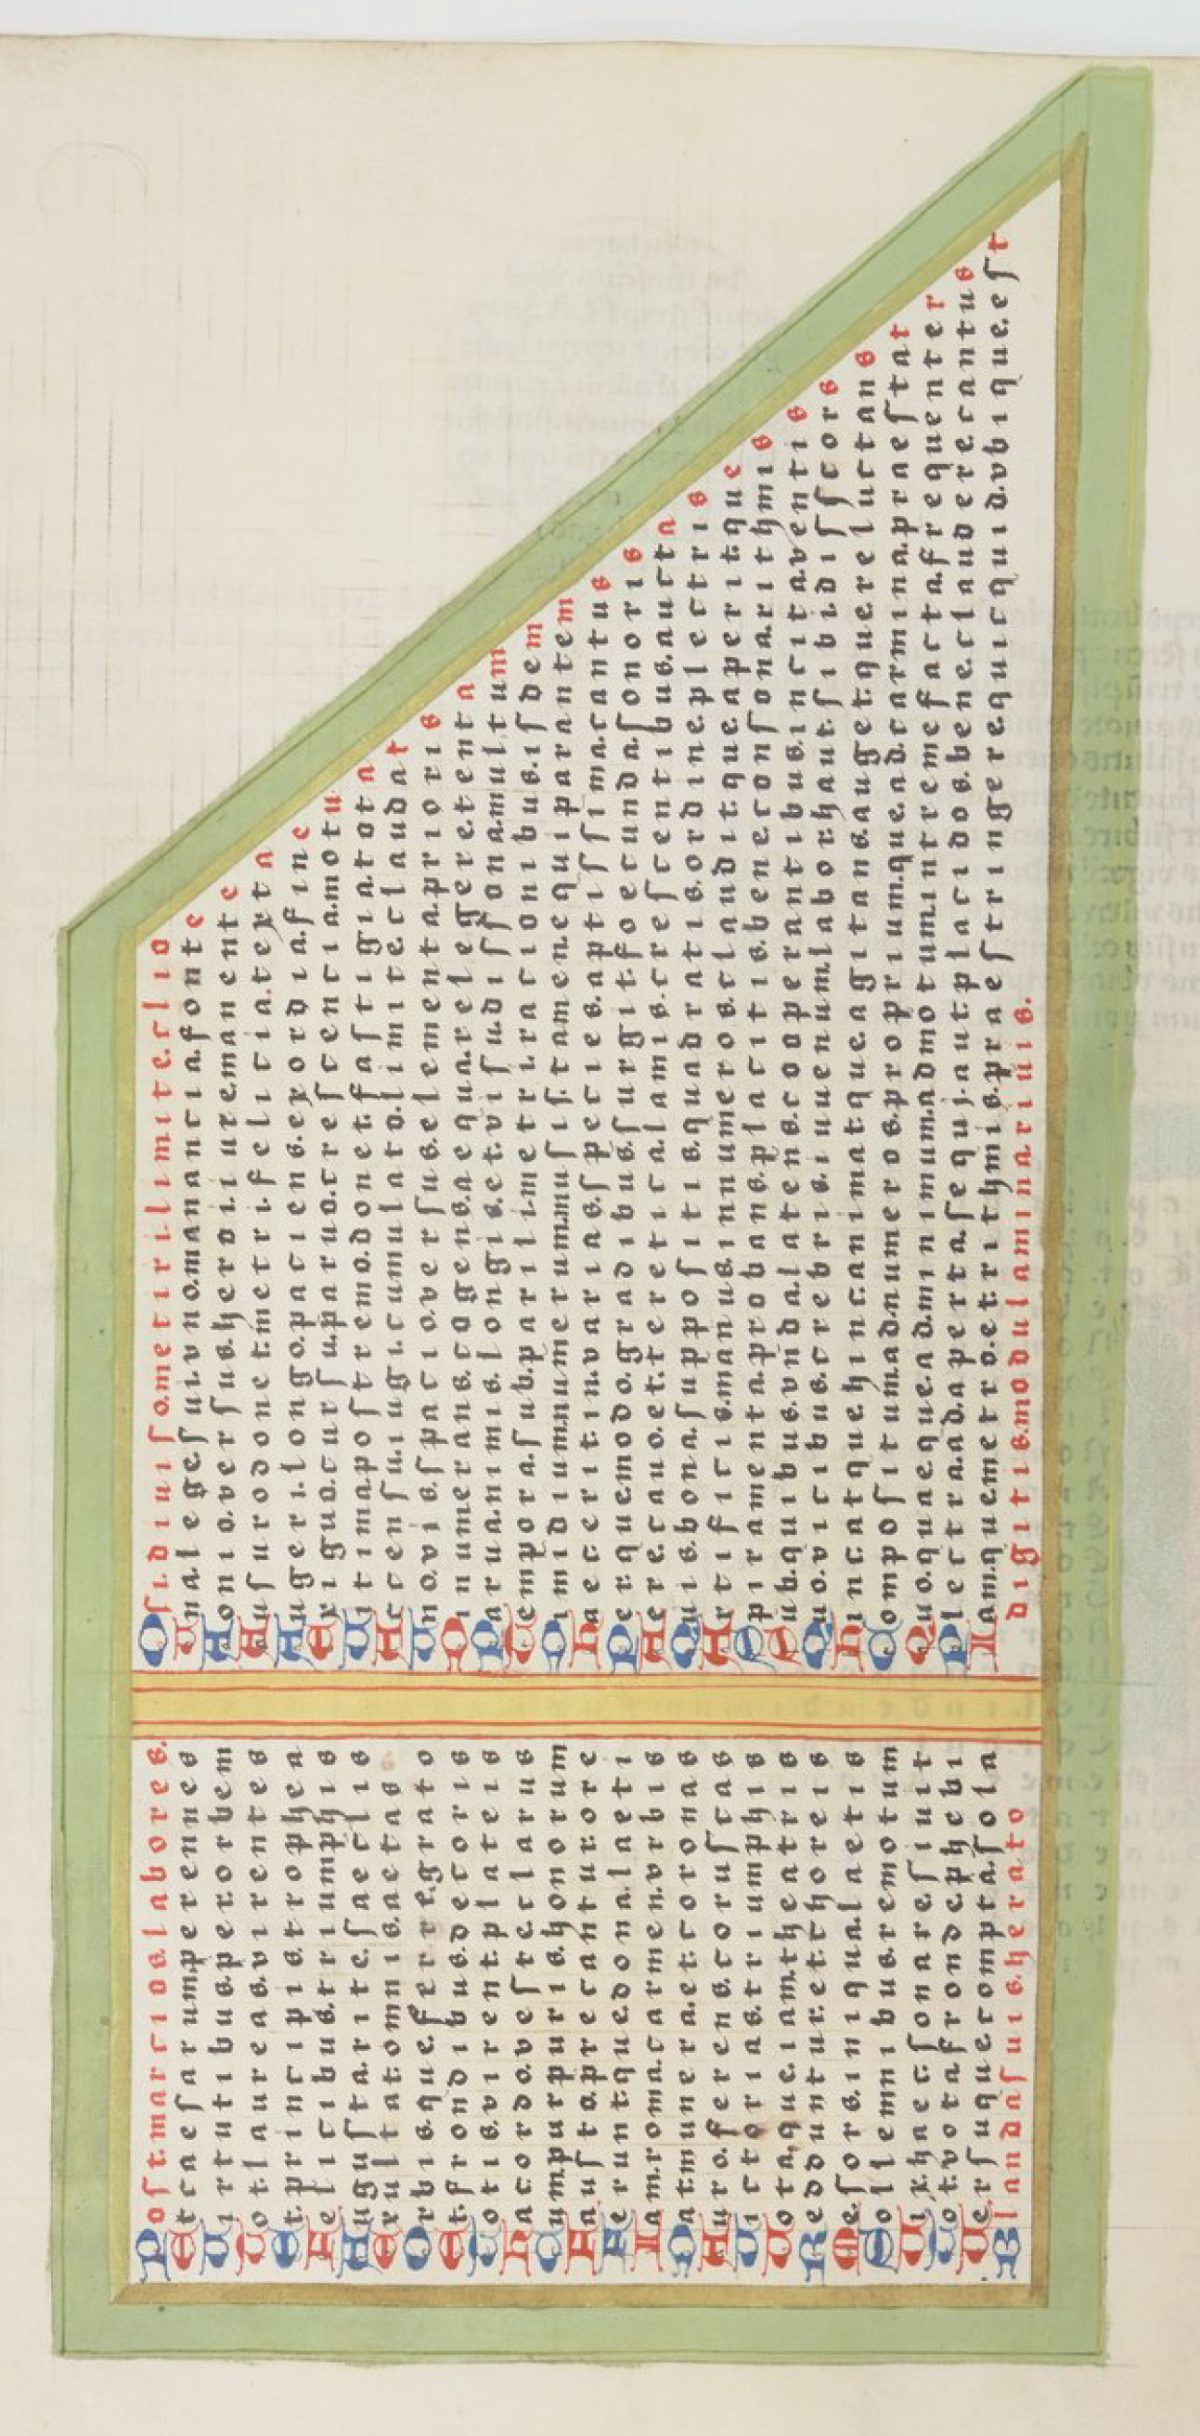 Poſt.marcios.labores.
Et.caeſarum.perennes
Virtutibus.per.orbem
Tot.laureas.virentes
Et.principis.trophea
Felicibus.triumphis
Auguſta.rite.ſaeclis
Exultat.omnis.aetas
Orbisque.ferre.grato
Et.frondibus.decoris
Totis.virent.plateis
Hac.ordo.veſte.clarus
Cum.purpuris.honorum
Fauſto.precantur.ore
Feruntque.dona.laeti
Iam.roma.carmen.vrbis
Dat.munera.et.coronas
Auro.ferens.coruſcas
Victorias.triumphis
Vota.que.iam.theatris
Redduntur.et.choreis
Me.ſors.iniqua.laetis
Solemnibus.remotum
Vix.haec.ſonare.ſiuit
Tot.vota.fronde.phebi
Verſuque.compta.ſola
Blanda.ſuis.herato
O.ſi.diuiſo.metiri.limite.clio
Vna.lege.ſui.vno.manancia.fonte
Aonio.verſus.heroi.iure.manente
Auſuro.donet.metri.felicia.texta
Augeri.longo.paciens.exordia.fine
Exiguo.curſu.paruo.creſcencia.motu
Vltima.poſtremo.donet.faſtigia.tota
Aſcenſu.iugi.cumulato.limite.claudat
Vno.vis.ſpacio.verſus.elementa.prioris
Dinumerans.cogens.aequare.lege.retenta
Parua.nimis.longis.et.viſu.diſſona.multum
Tempora.ſub.parili.metri.racionibus.iſdem
Dimidium.numerum.muſis.tamen.aequiparantem
Haec.erit.in.varias.ſpecies.aptiſſima.cantus
Perque.modo.gradibus.ſurgit.foecunda.ſonoris
Aere.cauo.et.tereti.calamis.creſcentibus.aucta
Quis.bona.ſuppoſitis.quadratis.ordine.plectris
Artificis.manus.innumeros.claudit.que.aperit.que
Spiramenta.probans.placitis.bene.conſona.rithmis
Sub.quibus.vnda.latens.cooperantibus.incita.ventis
Quo.vicibus.crebris.iuuenum.labor.haut.ſibi.diſſcors
Hinc.atque.hinc.animatque.agitans.auget.que.reluctans
Compoſitum.ad.numeros.proprium.que.ad.carmina.praeſtat
Quo.quaeque.ad.minimum.admotum.intremefacta.frequenter
Plectra.ad.aperta.ſequi.aut.placidos.bene.claudere.cantus
Iam.que.metro.et.rithmis.praeſtringere.quicquid.vbique.eſt
digitis.modulaminariuis.